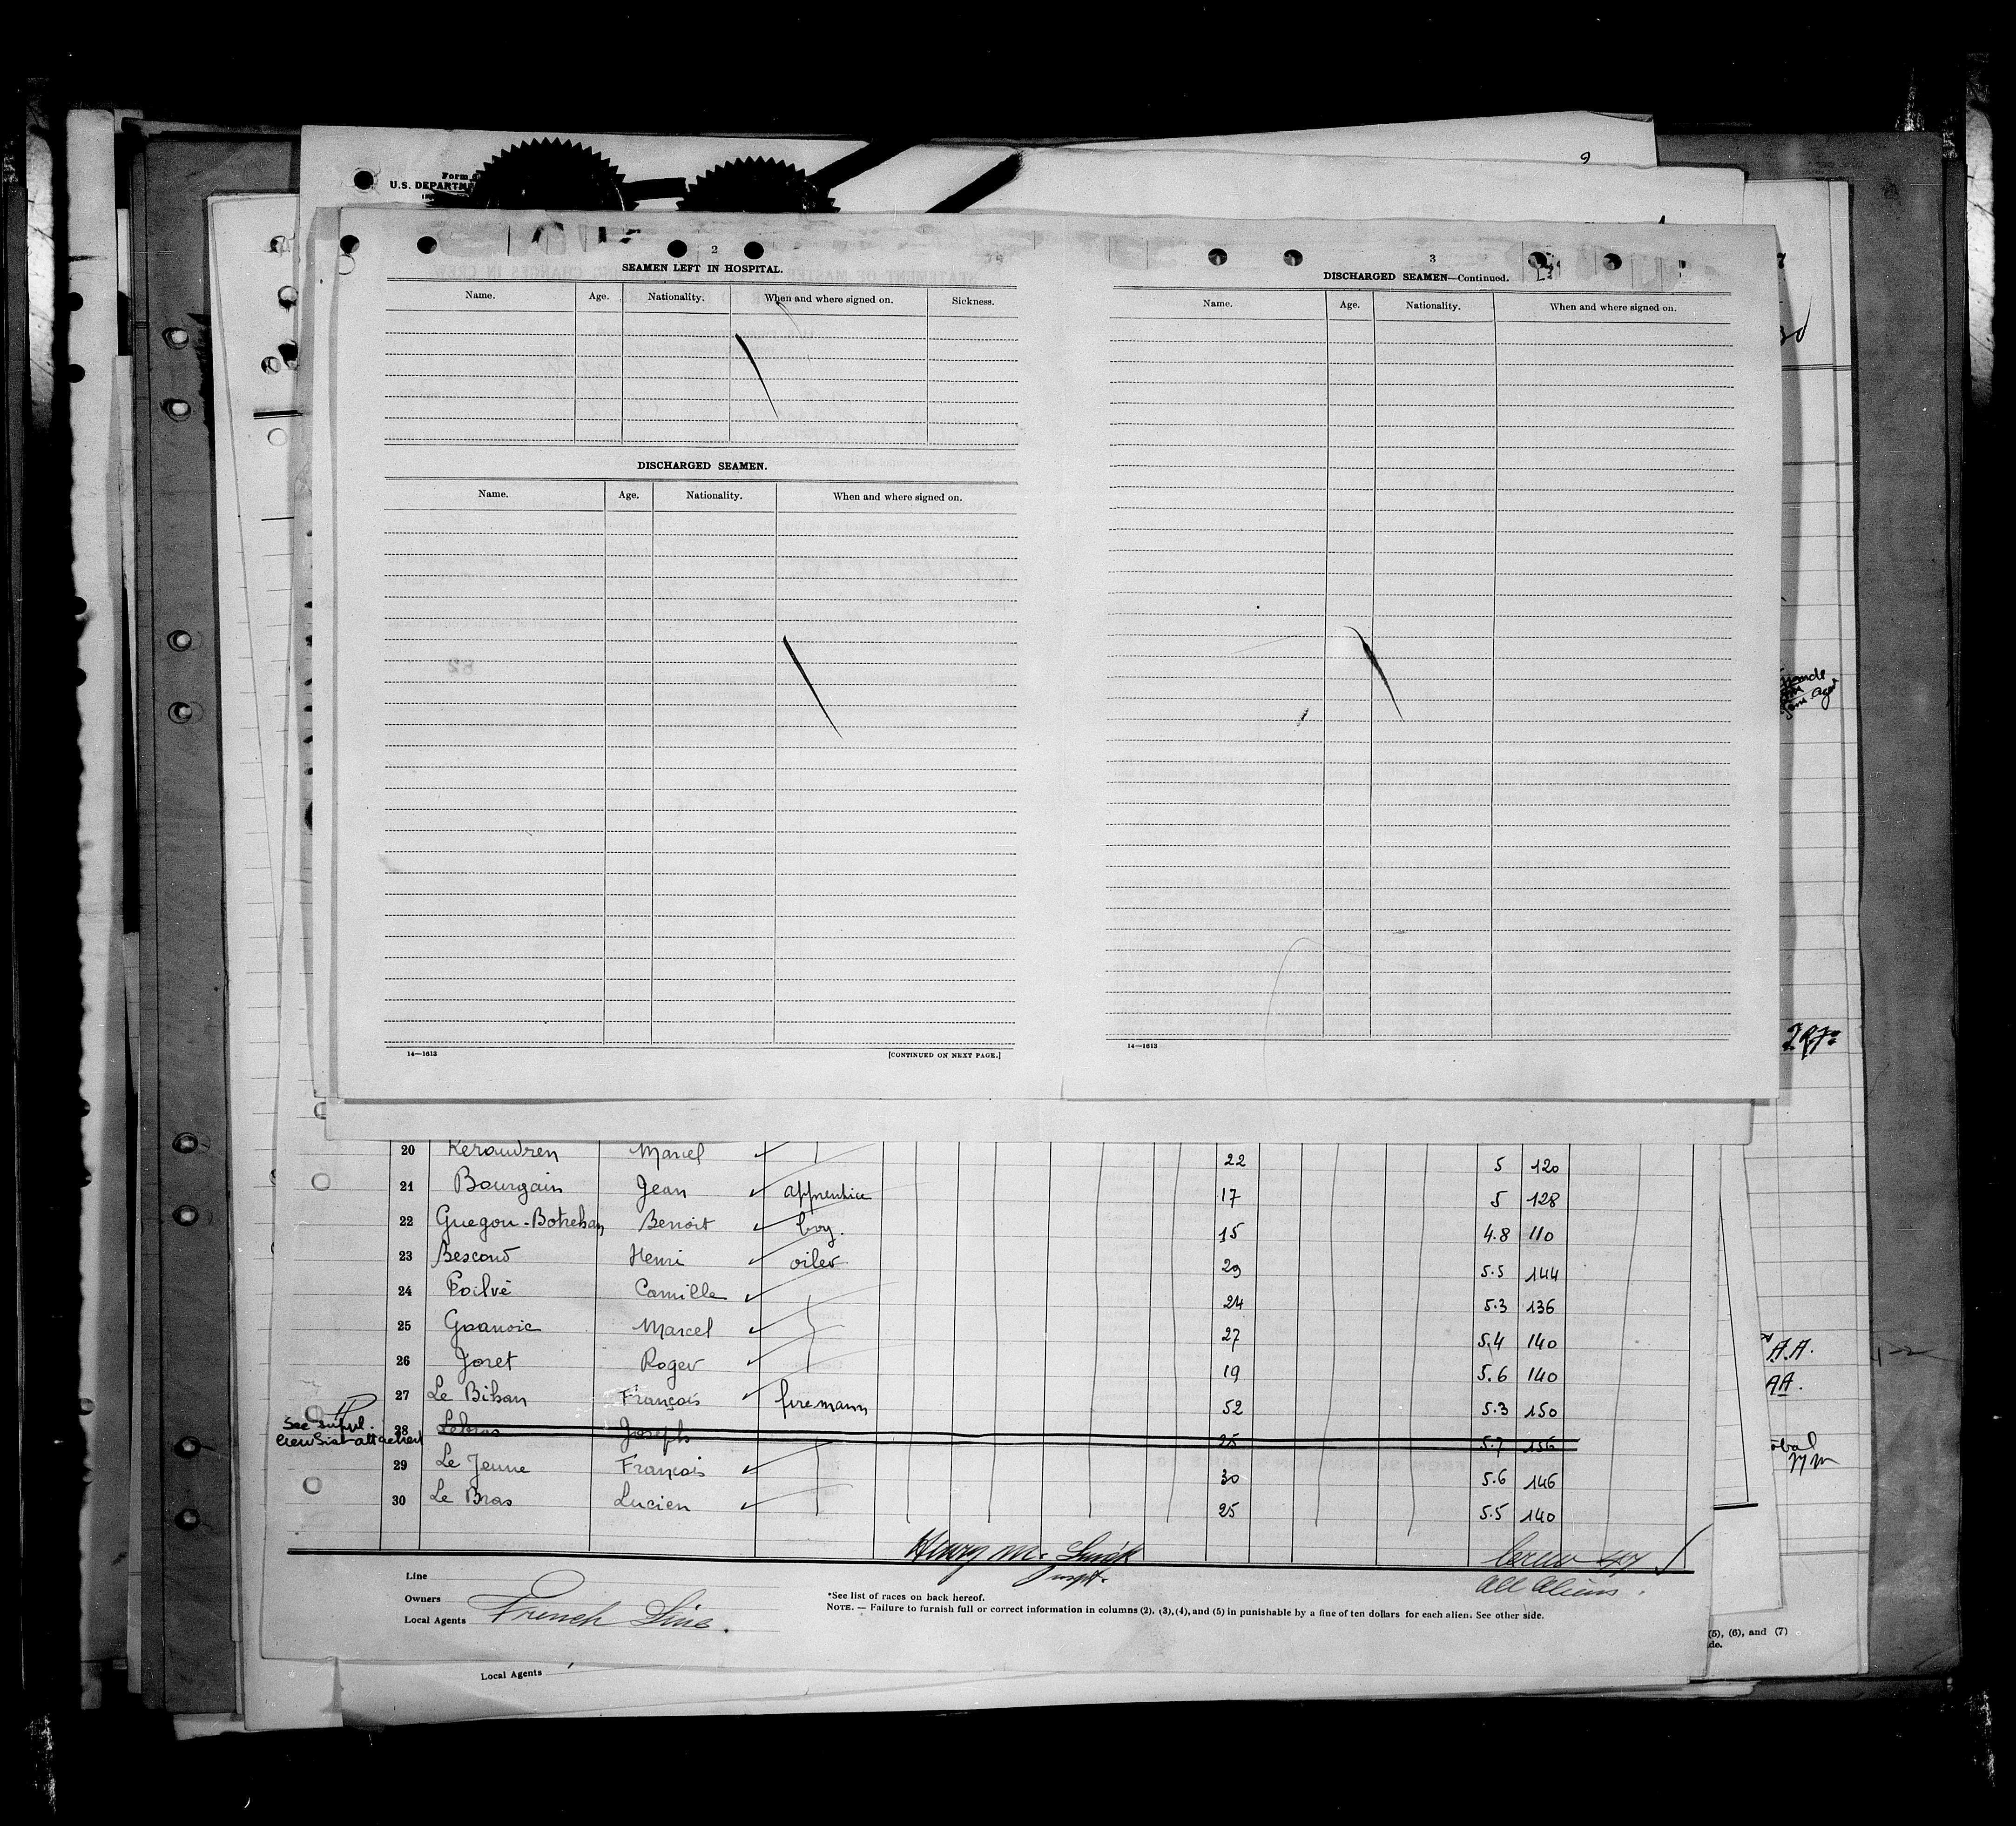 9
Form
U.S. DEPARTME
2
SEAMEN LEFT IN HOSPITAL.
Name. Age. Nationality. When and where signed on. Sickness.
DISCHARGED SEAMEN.
Name. Age. Nationality. When and where signed on.
14—1613 [CONTINUED ON NEXT PAGE.]
3
DISCHARGED SEAMEN—Continued.
Name. Age. Nationality. When and where signed on.
14—1613
20 Keraudren Marcel 22 5 120
21 Bourgain Jean apprentice 17 5 128
22 Guegou-Botrehan Benoit boy. 15 4.8 110
23 Bescond Henri oiler 29 5.5 144
24 Poilvé Camille 24 5.3 136
25 Marcel 27 5.4 140
26 Joret Roger 19 5.6 140
27 Le Bihan François firemann 52 5.3 150
See suppl. 28 Lebras Joseph 25 5.7 156
Crew List attached
29 Le Jeune François 30 5.6 146
30 Le Bras Lucien 25 5.5 140
Henry M.
Inspt.
Crew 47
All Aliens.
Line
Owners
Local Agents French Line.
*See list of races on back hereof.
NOTE. — Failure to furnish full or correct information in columns (2), (3), (4), and (5) in punishable by a fine of ten dollars for each alien. See other side.
Local Agents
A.A.
AA.
(5), (6), and (7)
de.